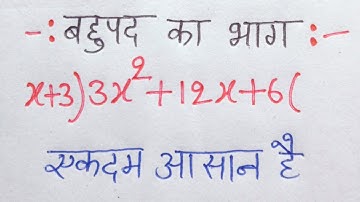 -: बहुपद का भाग :-
x+3)3x²+12x+6(
एकदम आसान है